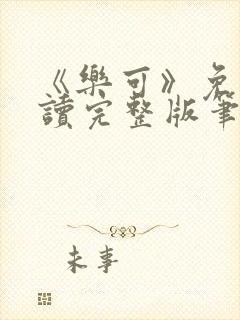 《樂可》免
讀完整版筆
未事